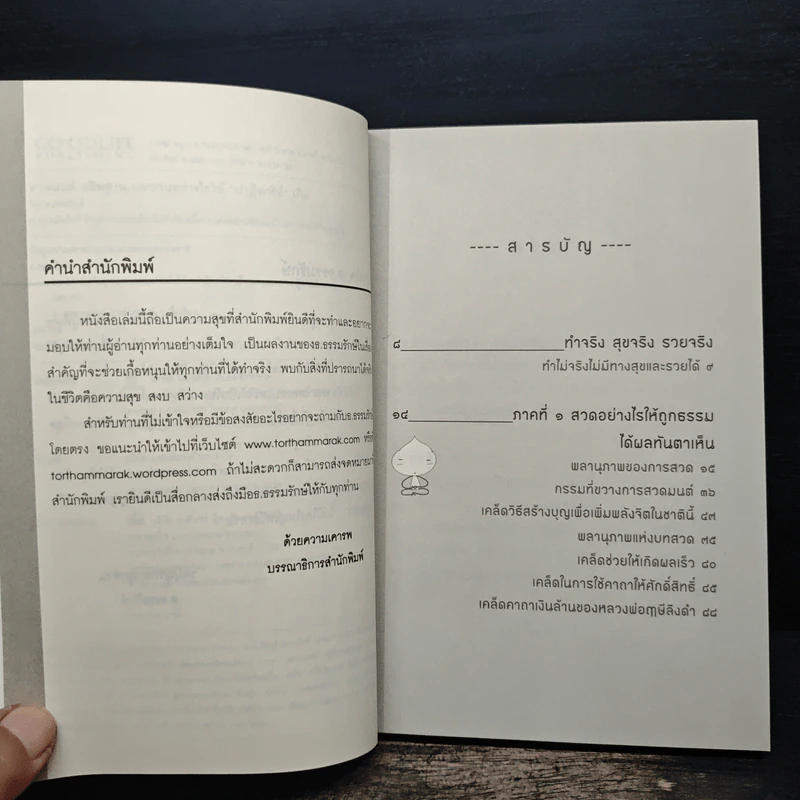 คำนำสำนักพิมพ์
หนังสือเล่มนี้ถือเป็นความสุขที่สำนักพิมพ์ยินดีที่จะทำและอยากจะ
มอบให้ท่านผู้อ่านทุกท่านอย่างเต็มใจ เป็นผลงานของธ.ธรรมรักษ์ในเรื่อง
สำคัญที่จะช่วยเกื้อหนุนให้ทุกท่านที่ได้ทำจริง พบกับสิ่งที่ปรารถนาได้จริง
ในชีวิตคือความสุข สงบ สว่าง
สำหรับท่านที่ไม่เข้าใจหรือมีข้อสงสัยอะไรอยากจะถามกับธ.ธรรมรักษ์
โดยตรง ขอแนะนำให้เข้าไปที่เว็บไซต์ www.torthammarak.com หรือที่
torthammarak.wordpress.com ถ้าไม่สะดวกก็สามารถส่งจดหมายมาที่
สำนักพิมพ์ เรายินดีเป็นสื่อกลางส่งถึงมือธ.ธรรมรักษ์ให้กับทุกท่าน
ด้วยความเคารพ
บรรณาธิการสำนักพิมพ์
---- สารบัญ ----
๘ ทำจริง สุขจริง รวยจริง
ทำไม่จริงไม่มีทางสุขและรวยได้ ๙
๑๔ ภาคที่ ๑ สวดอย่างไรให้ถูกธรรม
ได้ผลทันตาเห็น
พลานุภาพของการสวด ๑๕
กรรมที่ขวางการสวดมนต์ ๓๖
เคล็ดวิธีสร้างบุญเพื่อเพิ่มพลังจิตในชาตินี้ ๔๗
พลานุภาพแห่งบทสวด ๗๕
เคล็ดช่วยให้เกิดผลเร็ว ๘๐
เคล็ดในการใช้คาถาให้ศักดิ์สิทธิ์ ๘๕
เคล็ดคาถาเงินล้านของหลวงพ่อฤาษีลิงดำ ๘๘